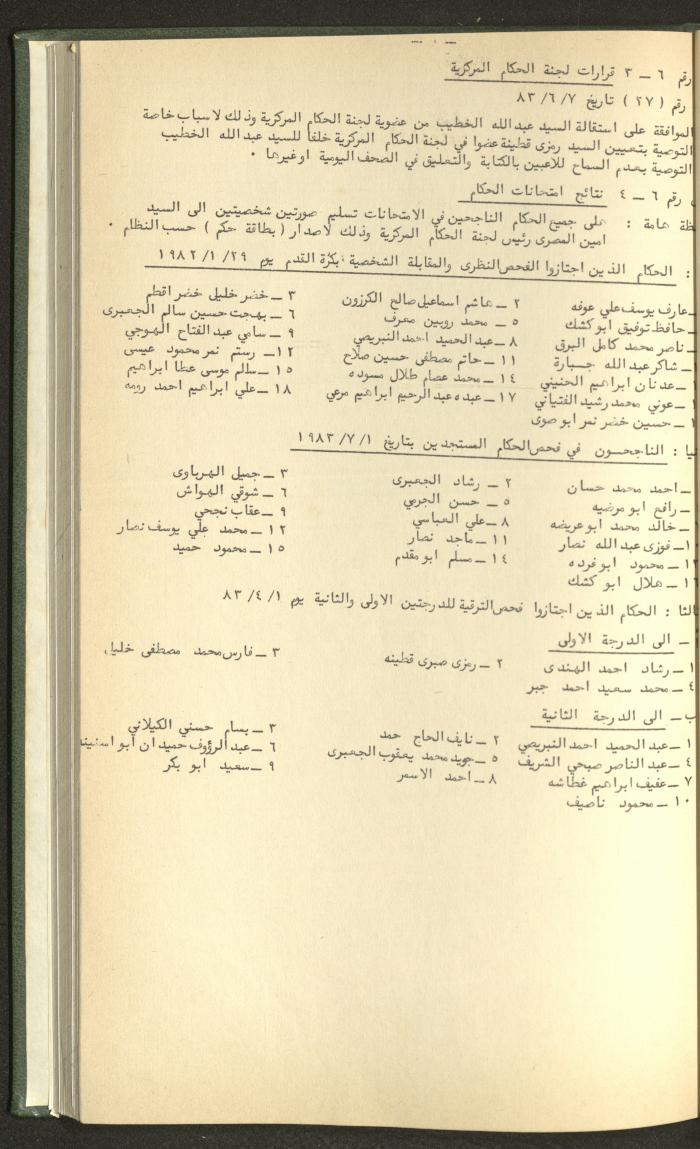 رقم ٦ ــ ٣ قرارات لجنة الحكام المركزية
رقم ( ٢٧ ) تاريخ ٨٣/٦/٧
الموافقة على استقالة السيد عبد الله الخطيب من عضوية لجنة الحكام المركزية وذلك لاسباب خاصة
التوصية بتعيين السيد رمزى قطينة عضوا في لجنة الحكام المركزية خلفا للسيد عبد الله الخطيب
التوصية بعدم السماح للاعبين بالكتابة والتعليق في الصحف اليومية اوغيرها ٠
رقم ٦ ــ ٤ نتائج امتحانات الحكام
ظة عامة : على جميع الحكام الناجحين في الامتحانات تسليم صورتين شخصيتين الى السيد
امين المصرى رئيس لجنة الحكام المركزية وذلك لاصدار ( بطاقة حكم ) حسب النظام ٠
: الحكام الذين اجتازوا الفحص النظرى والمقابلة الشخصية بكرة القدم يوم ١٩٨٢/١/٢٩
ــ عارف يوسف علي عوفه ٢ ــ هاشم اسماعيل صالح الكرزون ٣ ــ خضر خليل خضر اقطم
ــ حافظ توفيق ابو كشك ٥ ــ محمد روبين معرف ٦ ــ بهجت حسين سالم الجعبرى
ــ ناصر محمد كامل البرق ٨ ــ عبد الحميد احمد النبريصي ٩ ــ سامي عبد الفتاح الهوجي
ــ شاكر عبد الله جسبارة ١١ ــ حاتم مصطفى حسين صلاح ١٢ ــ رستم نمر محمود عيسى
ــ عدنان ابراهيم الحنيني ١٤ ــ محمد عصام طلال مسوده ١٥ ــ سالم موسى عطا ابراهيم
١ ــ عوني محمد رشيد الفتياني ١٧ ــ عبده عبد الرحيم ابراهيم مرعي ١٨ ــ علي ابراهيم احمد رومه
١ ــ حسين خضر نمر ابو صوى
يا : الناجحون في فحص الحكام المستجدين بتاريخ ١٩٨٣/٧/١
ــ احمد محمد حسان ٢ ــ رشاد الجعبرى ٣ ــ جميل الهرباوى
ــ رافع ابو مرضيه ٥ ــ حسن الجرمي ٦ ــ شوقي الهواش
ــ خالد محمد ابو عريضه ٨ ــ علي العباسي ٩ ــ عقاب نجحي
١ ــ فوزى عبد الله نصار ١١ ــ ماجد نصار ١٢ ــ محمد علي يوسف نصار
١٣ ــ محمود ابو فرده ١٤ ــ مسلم ابو مقدم ١٥ ــ محمود حميد
١٦ ــ هلال ابو كشك
الثا : الحكام الذين اجتازوا فحص الترقية للدرجتين الاولى والثانية يوم ٨٣/٤/١
ــ الى الدرجة الاولى
١ ــ رشاد احمد الهندى ٢ ــ رمزى صبرى قطينه ٣ ــ فارس محمد مصطفى خليل
٤ ــ محمد سعيد احمد جبر
ب ــ الى الدرجة الثانية
١ ــ عبد الحميد احمد النبريصي ٢ ــ نايف الحاج حمد ٣ ــ بسام حسني الكيلاني
٤ ــ عبد الناصر صبحي الشريف ٥ ــ جويد محمد يعقوب الجعبرى ٦ ــ عبد الرؤوف حميدان ابو اسنينه
٧ ــ عفيف ابراهيم غطاشه ٨ ــ احمد الاسمر ٩ ــ سعيد ابو بكر
١٠ ــ محمود ناصيف